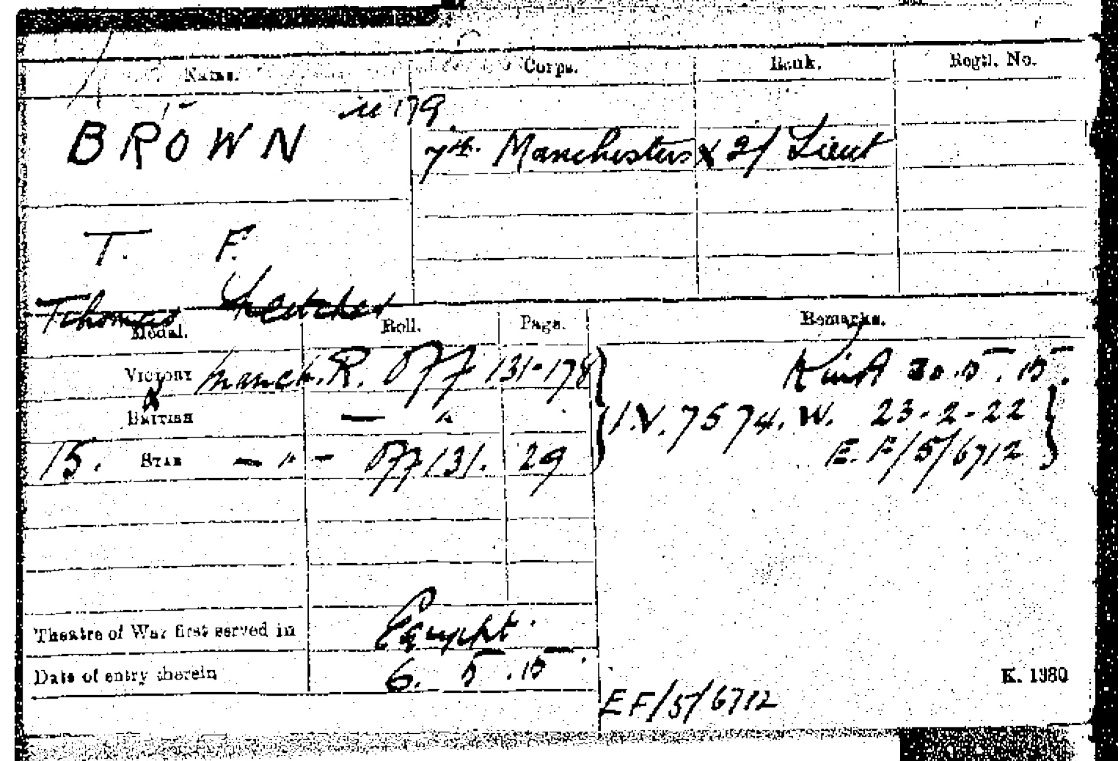 Name. Corps. Rank. Regtl. No.
BROWN 179 7th. Manchesters X 2/ Lieut
T. F.
Thomas Fletcher
Medal. Roll. Page. Remarks.
VICTORY Manch. R. Off 131-178 K in A 30.5.15.
& BRITISH — " I.V. 7574. W. 23-2-22
15. STAR — " — Off 131. 29 E.F/5/6712
Theatre of War first served in Egypht.
Date of entry therein 6. 5. 15
K. 1380
EF/5/6712